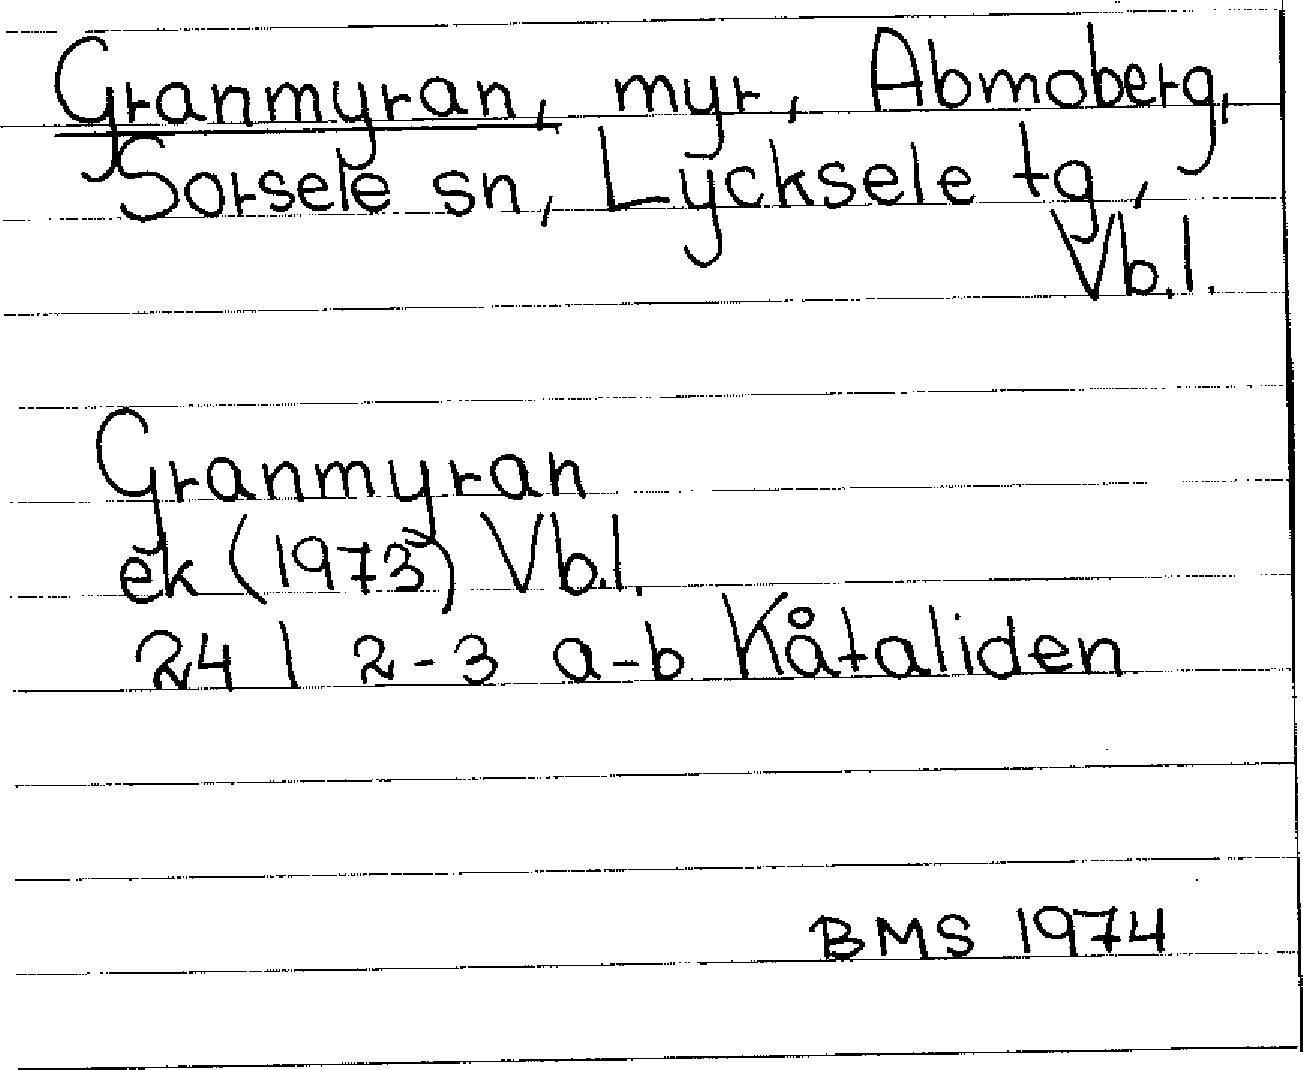 Granmyran, myr, Abmoberg,
Sorsele sn, Lycksele tg,
Vb.l.
Granmyran
ek (1973) Vb.l.
24 I 2-3 a-b Kåtaliden
BMS 1974